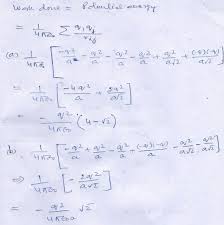 Work done = Potential energy
= 1/4πε₀ Σ qᵢqⱼ/rᵢⱼ
(a) 1/4πε₀ [-q²/a - q²/a - q²/a - q²/a + q²/a√2 + (-q)(-q)/a√2]
= 1/4πε₀ [-4q²/a + 2q²/a√2]
= -q²/4πε₀ (4-√2)
b. 1/4πε₀ [-q²/a + q²/a - q²/a + (-q)(-q)/a - q²/a√2 - q²/a√2]
⇒ 1/4πε₀ [-2q²/a√2]
= -q²/4πε₀a √2